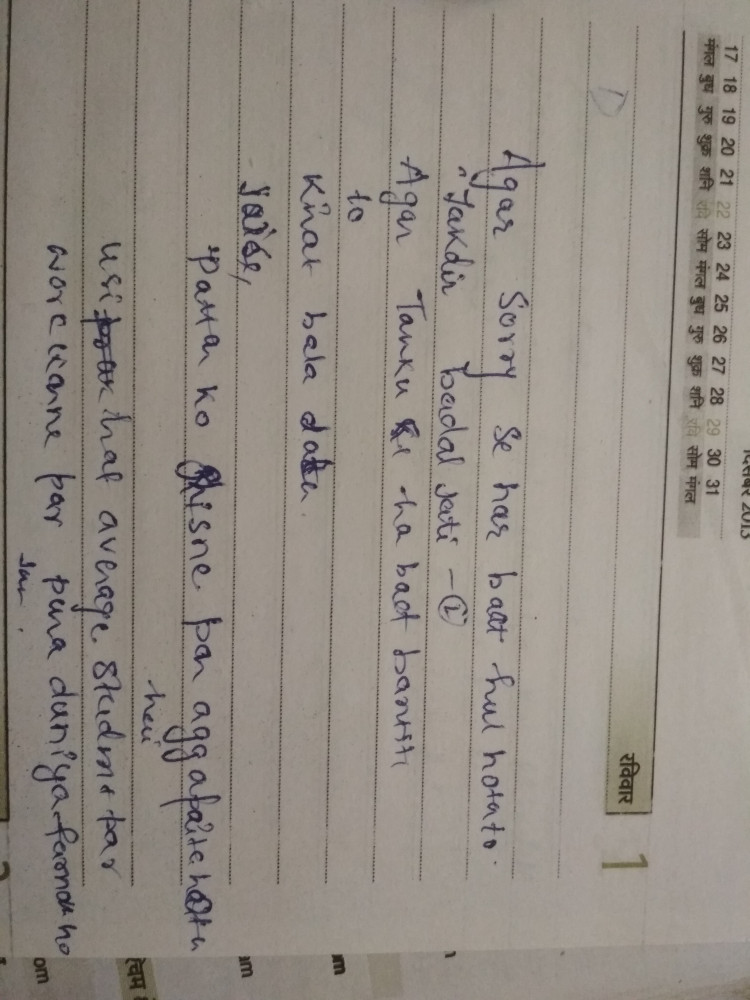 दिसंबर 2013
17 18 19 20 21 22 23 24 25 26 27 28 29 30 31
मंगल बुध गुरु शुक्र शनि रवि सोम मंगल बुध गुरु शुक्र शनि रवि सोम मंगल
रविवार 1
Agar Sorry se har baat hul hotato.
Takdir badal jati - (i)
Agar Tanku se ha baat banisti
to
Kinat bala data.
Jaise,
Patta ko ghisne par agg afaite hau
heii
usi hat average Studmt par
par pura duniya ho
om
am